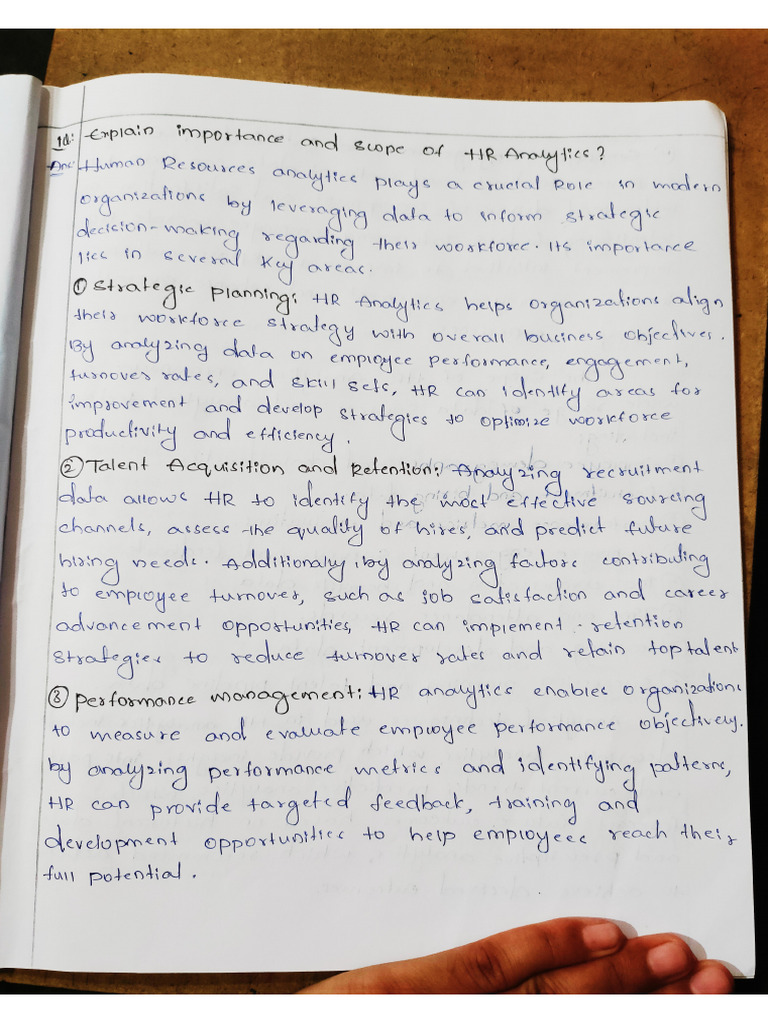 1Q: Explain importance and scope of HR Analytics?
Ans: Human Resources analytics plays a crucial Role in modern
organizations by leveraging data to inform strategic
decision-making regarding their workforce. Its importance
lies in several Key areas.
① Strategic planning: HR Analytics helps organizations align
their workforce strategy with overall business objectives.
By analyzing data on employee performance, engagement,
turnover rates, and skill sets, HR can identify areas for
improvement and develop strategies to optimize workforce
productivity and efficiency.
② Talent Acquisition and Retention: Analyzing recruitment
data allows HR to identify the most effective sourcing
channels, assess the quality of hires, and predict future
hiring needs. Additionally, by analyzing factors contributing
to employee turnover, such as job satisfaction and career
advancement opportunities, HR can implement retention
strategies to reduce turnover rates and retain top talent
③ performance management: HR analytics enables organizations
to measure and evaluate employee performance objectively.
by analyzing performance metrics and identifying patterns,
HR can provide targeted feedback, training and
development opportunities to help employees reach their
full potential.